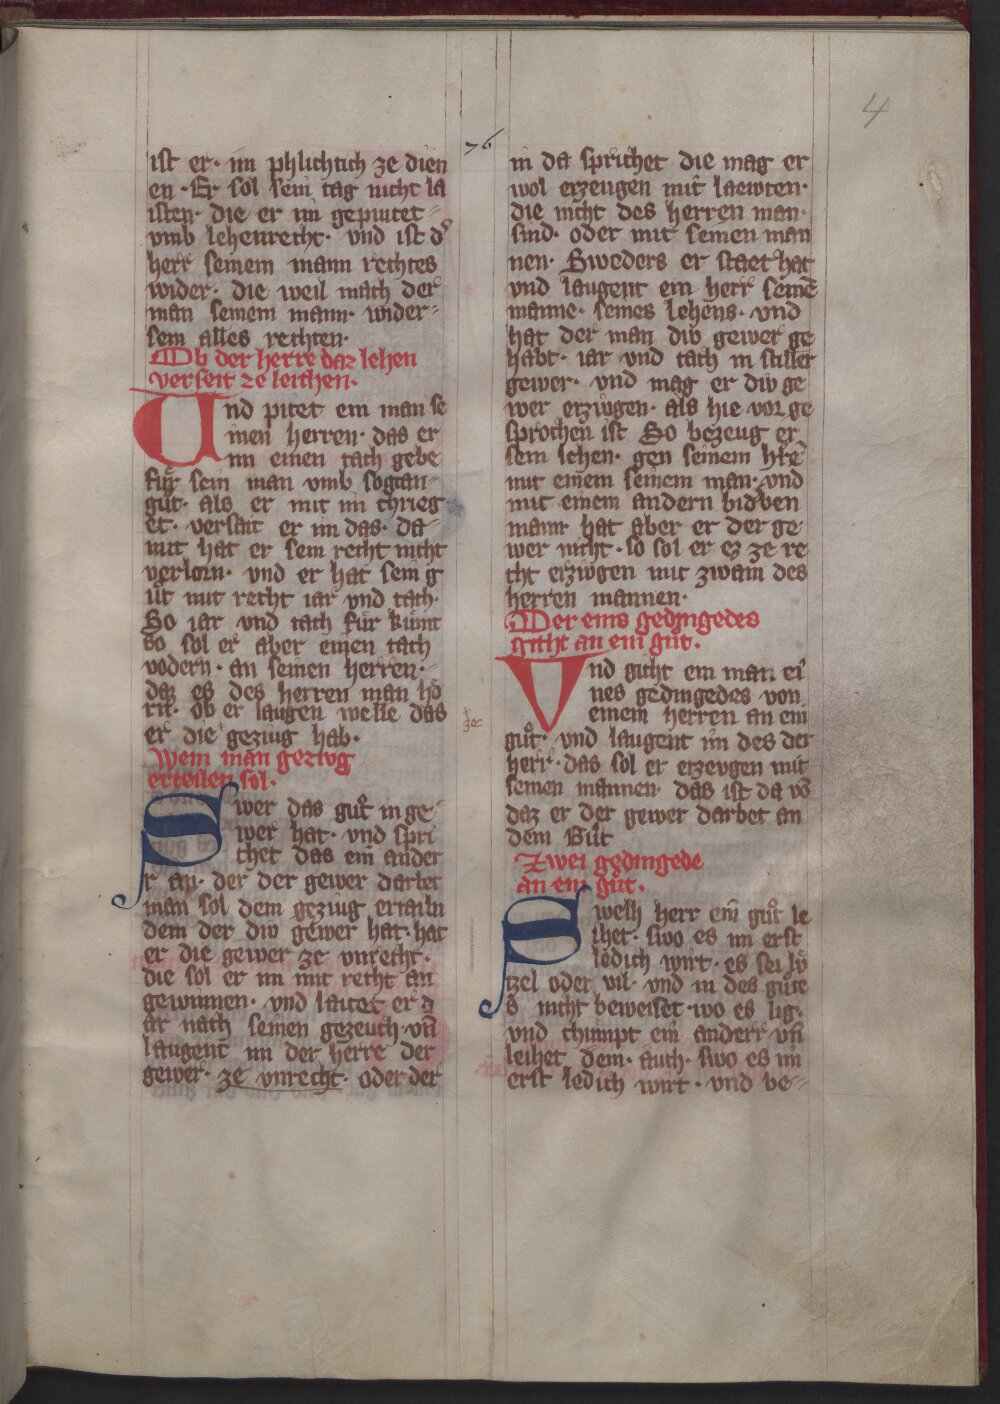 4
76
ist er· im phlichtich ze dien
en· Er sol sein tag nicht la
isten· die er im gepiutet⸗
vmb lehenrecht· vnd ist d᷑
herr seinem mann rechtes
wider· die weil mach der
man seinem mann· wider⸗
sem alles rechten·
Ob der herre daz lehen
verseit ze leichen·
Und pitet ein man se
inen herren· das er
im einen tach gebe
fuͤr sein man vmb sogtan⸗
guͦt· als er mit im chrieg
et· versait er im das· da⸗
mit hat er sein recht nicht
verlorn· vnd er hat sein g
uͦt mit recht iar vnd tach·
So iar vnd tach fuͤr kuͤmt
so sol er aber einen tach
vodern· an seinen herren·
daz es des herren man hoͤ
rn· ob er laugen welle das
er die geziug hab·
Wem man geziug
erteilen sol·
Swer das guͦt in ge⸗
wer hat· vnd spri
chet das ein ander
r an· der der gewer darbet
man sol dem geziug ertailn
dem der diw gewer hat· hat
er die gewer ze vnrecht·
die sol er im mit recht an
gewinnen· vnd laitet er d
ar nach seinen gezeuch· vñ
laugent im der herre der
gewer· ze vnrecht· oder der
in da sprichet die mag er
wol erzeugen mit laewten·
die nicht des herren man·
sind· oder mit seinen man
nen· Sweders er staet hat
vnd laugent ein herr seinē
manne· seines lehens· vnd
hat der man diw gewer ge
habt· iar vnd tach in stiller
gewer· vnd mag er diw ge
wer erziwgen· als hie vor ge
sprochen ist So bezeug er
sein lehen· gen seinem hr̄e
mit einem seinem man· vnd
mit einem andern bidͤben
mann· hat aber er der ge
wer nicht· so sol er ez ze re
cht erziwgen mit zwain des
herren mannen·
Der eins gedingedes
gicht an ein guͦt·
Und gicht ein man ei
nes gedingedes von
einem herren an ein
guͦt· vnd laugent im des der
herr· das sol er erzeugen mit
seinen mannen· das ist da võ
daz er der gewer darbet an
dem Guͦt
Zwei gedingede
an ein guͦt·
Swelh herr ein guͦt le
ihet· swo es im erst
ledich wirt· es sei luͤ
tzel oder vil· vnd in des guͦte
s nicht beweiset· wo es lig·
vnd chumpt ein anderr vñ
leihet dem· auch· swo es im
erst ledich wirt· vnd be⸗